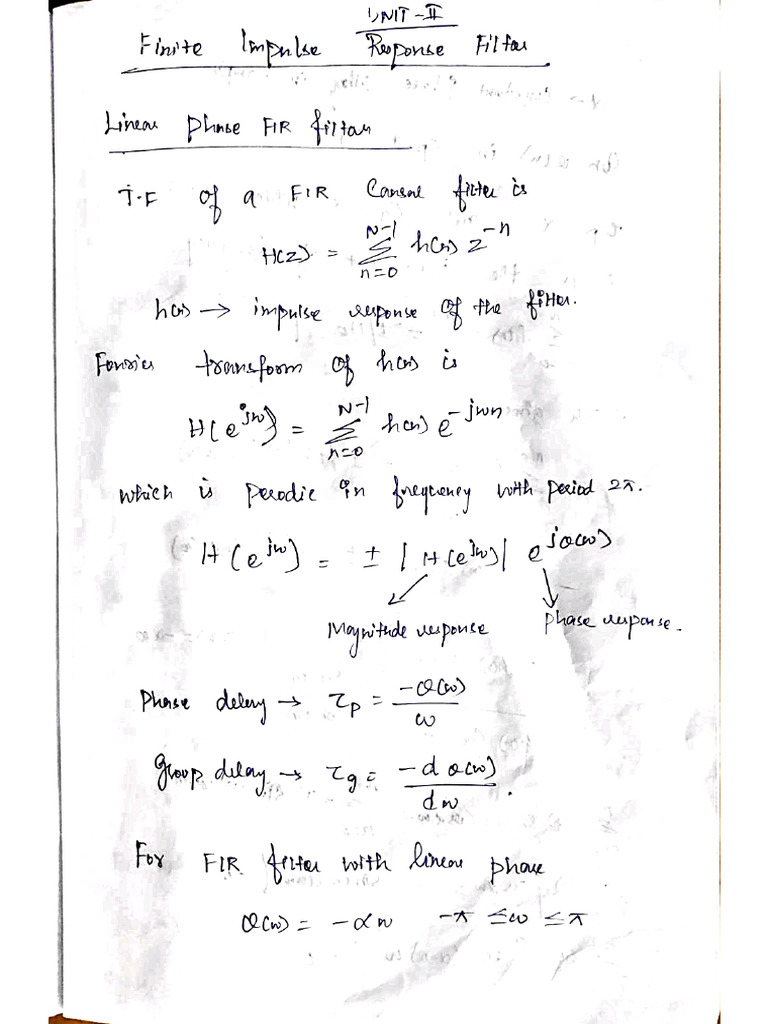 UNIT-II
Finite Impulse Response Filter
Linear Phase FIR filter
T.F of a FIR Causal filter is
H(z) = N-1 Σ n=0 h(n) z^-n
h(n) → impulse response of the filter.
Fourier transform of h(n) is
H(e^jω) = N-1 Σ n=0 h(n) e^-jωn
which is perodic in frequency with period 2π.
H(e^jω) = ± |H(e^jω)| e^jθ(ω)
Magnitude response Phase response.
Phase delay → τp = -θ(ω)/ω
Group delay → τg = -d θ(ω)/dω.
For FIR filter with linear phase
θ(ω) = -αω -π ≤ω ≤π